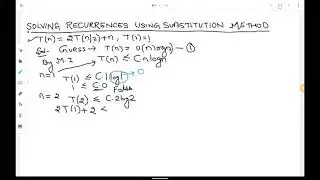 SOLVING RECURRENCES USING SUBSTITUTION METHOD
✓T(n) = 2T(n/2)+n, T(1)=1
Sol. Guess → T(n) = O(n logn) — ①
By M.I → T(n) ≤ Cn logn
n=1 T(1) ≤ C·1 log1 → 0
1 ≤ C·0 False
n=2 T(2) ≤ C·2log2
2T(1)+2 ≤